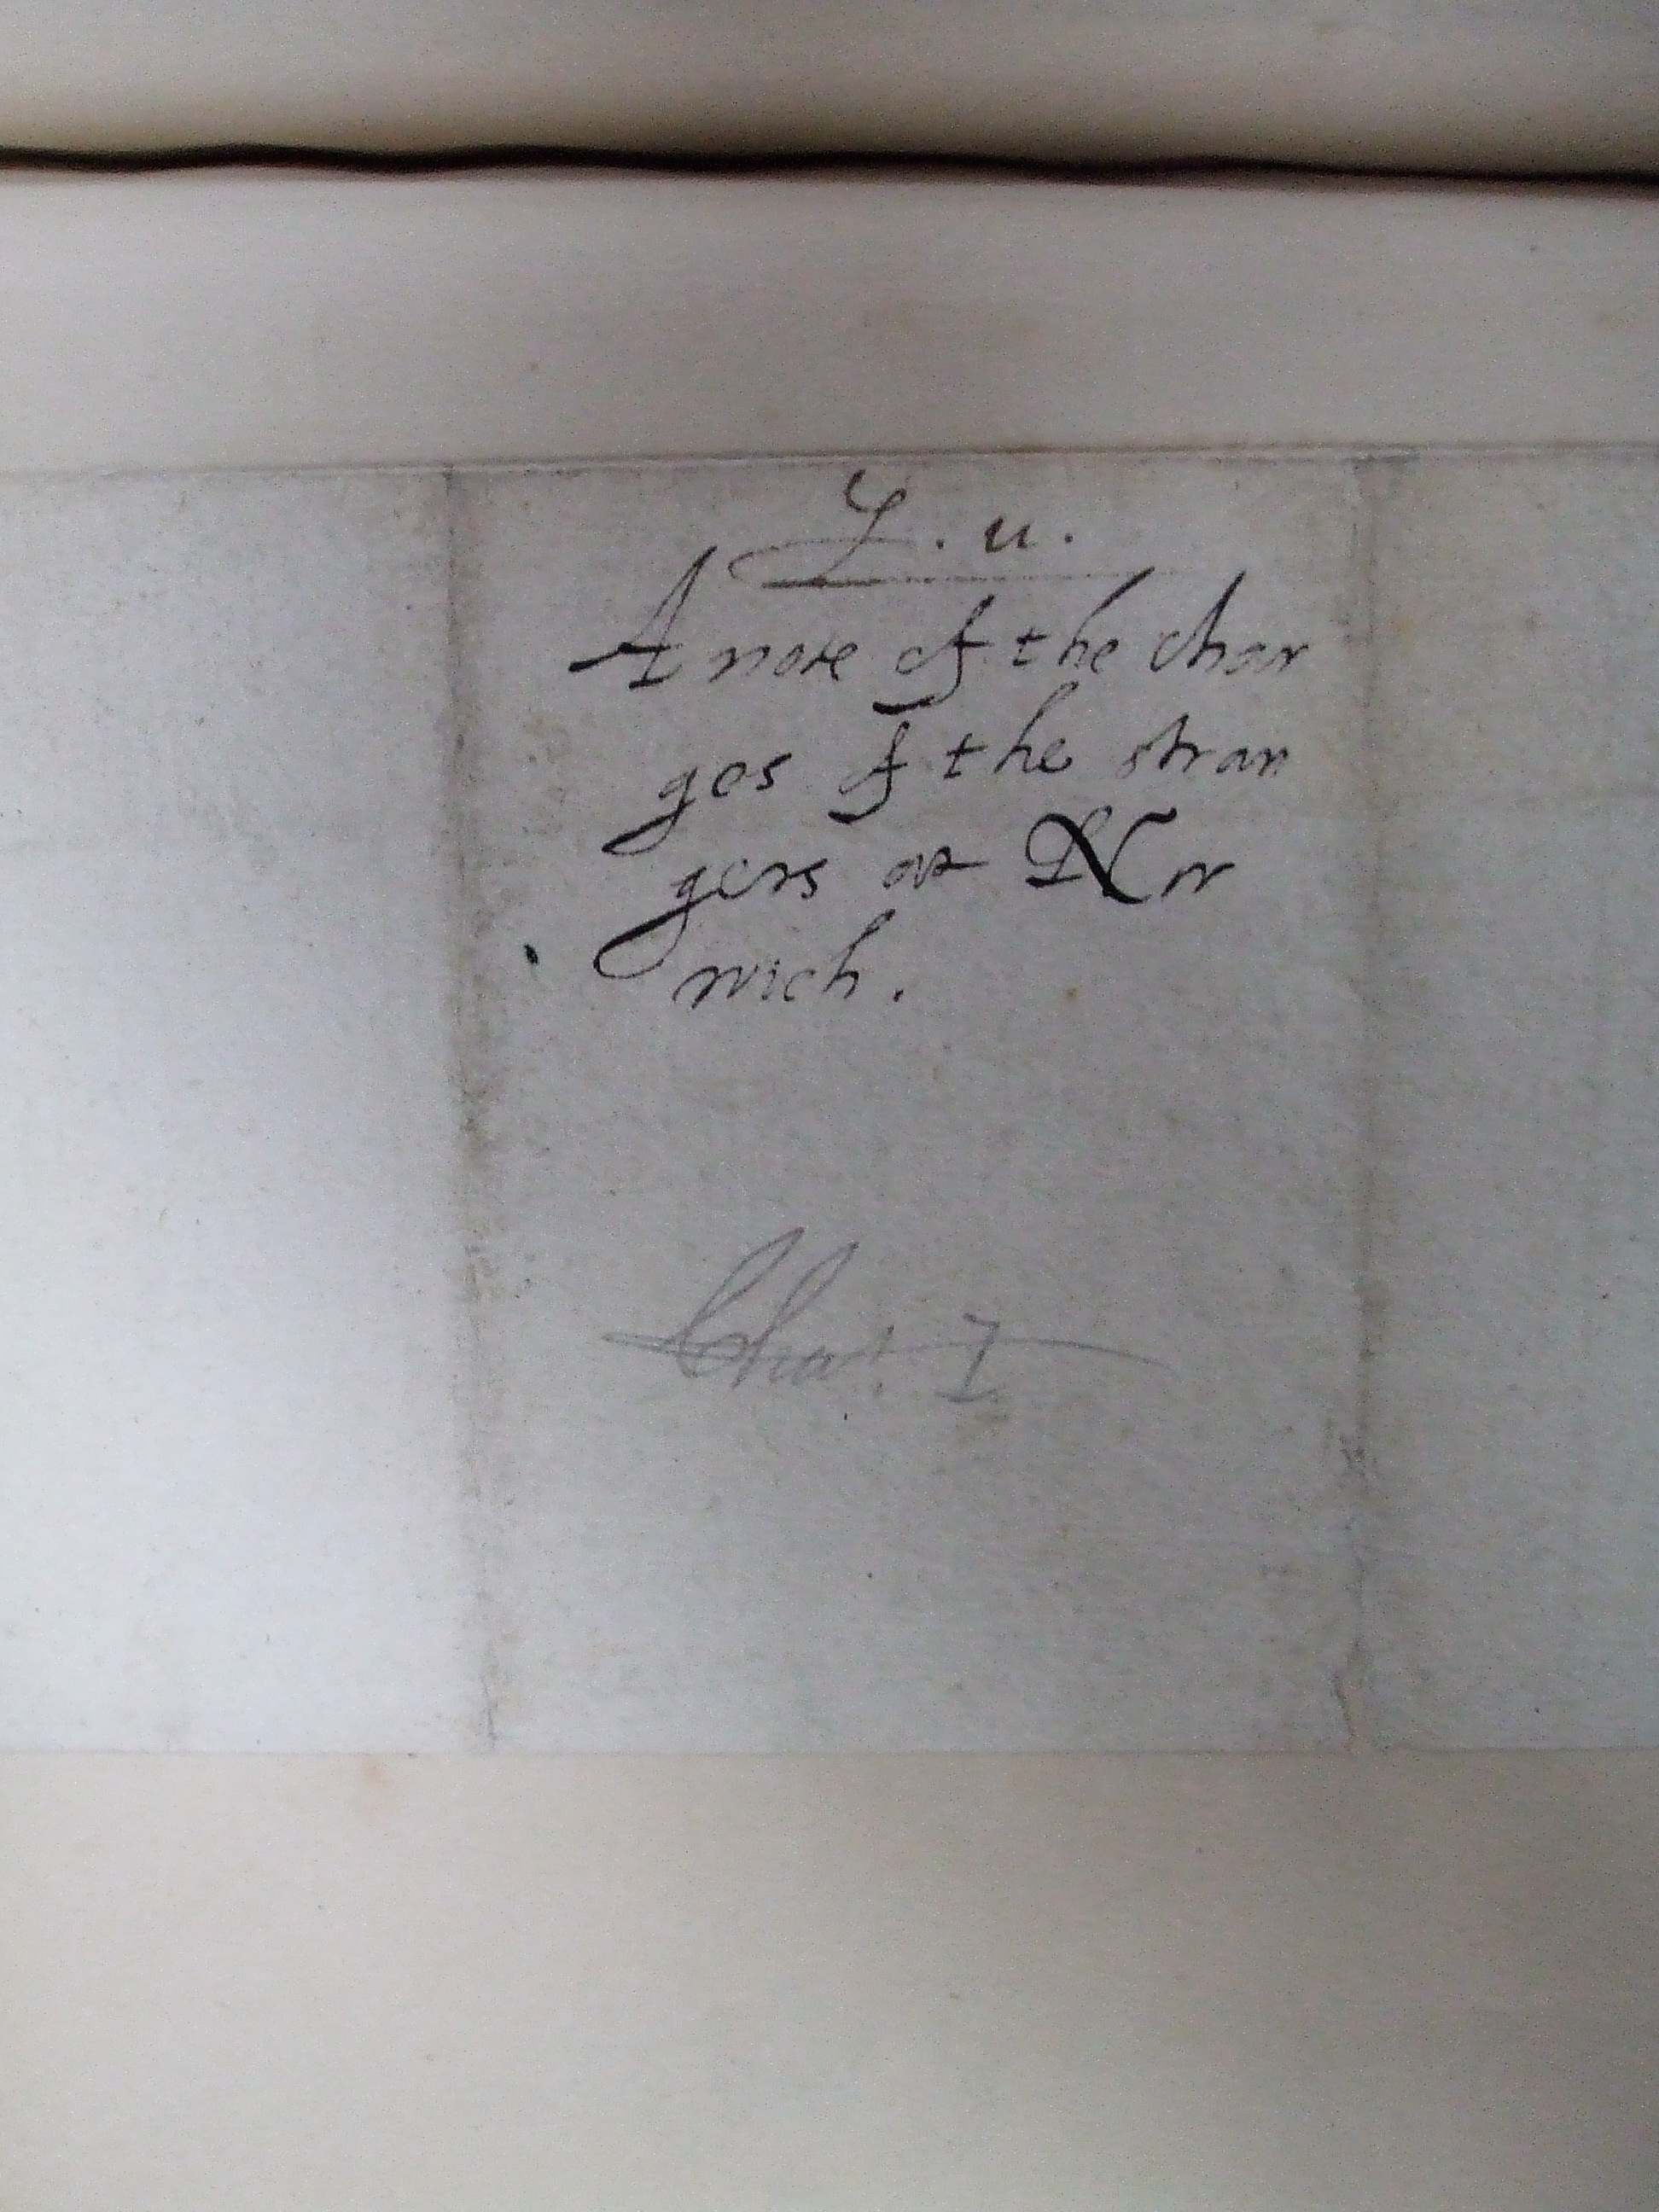 L. u.
A note of the char
ges of the stran
gers at Nor
wich.
Cha: I